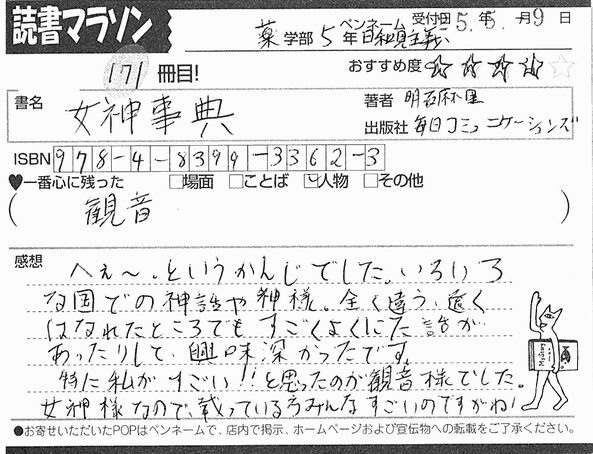 読書マラソン
ペンネーム 受付日 5年5月9日
薬学部5年 日和見主義
171冊目!
おすすめ度 ☆☆☆☆☆
書名 女神事典
著者 明石麻里
出版社 毎日コミュニケーションズ
ISBN 978-4-8399-3362-3
♥一番心に残った □場面 □ことば ☑人物 □その他
( 観音 )
感想
へぇ〜。というかんじでした。いろいろ
な国での神話や神様。全く違う、遠く
はなれたところでもすごくよくにた話が
あったりして、興味深かったです。
特に私がすごい!!と思ったのが観音様でした。
女神様なので、載っている方みんなすごいのですがね!
●お寄せいただいたPOPはペンネームで、店内で掲示、ホームページおよび宣伝物への転載をご了承ください。